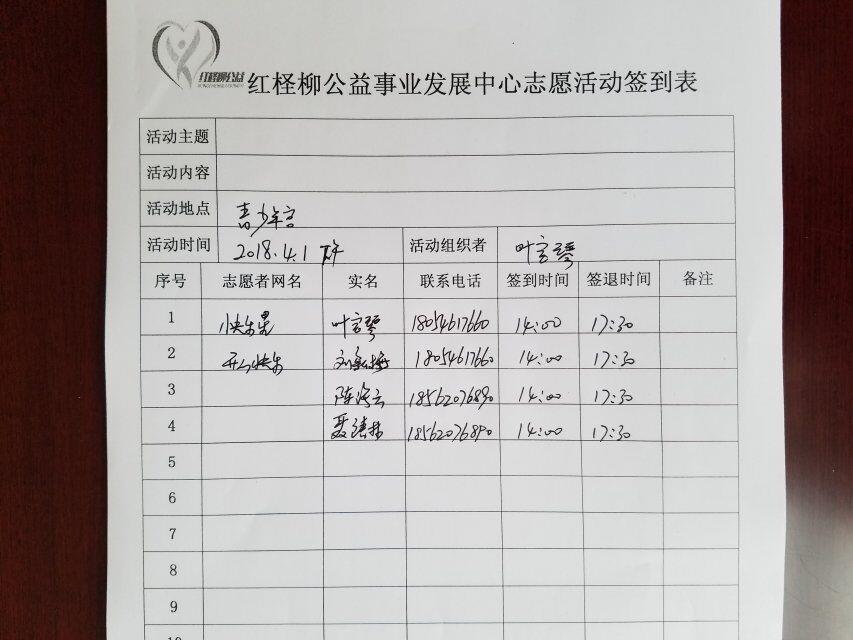 红柽柳公益
红柽柳公益事业发展中心志愿活动签到表
活动主题
活动内容
活动地点 青少年宫
活动时间 2018.4.1 下午 活动组织者 叶宫琴
序号 志愿者网名 实名 联系电话 签到时间 签退时间 备注
1 小快乐星 叶宫琴 18054617660 14:00 17:30
2 开心快乐 刘 梅 18054617660 14:00 17:30
3 陈海云 18562076890 14:00 17:30
4 聂 18562076890 14:00 17:30
5
6
7
8
9
10